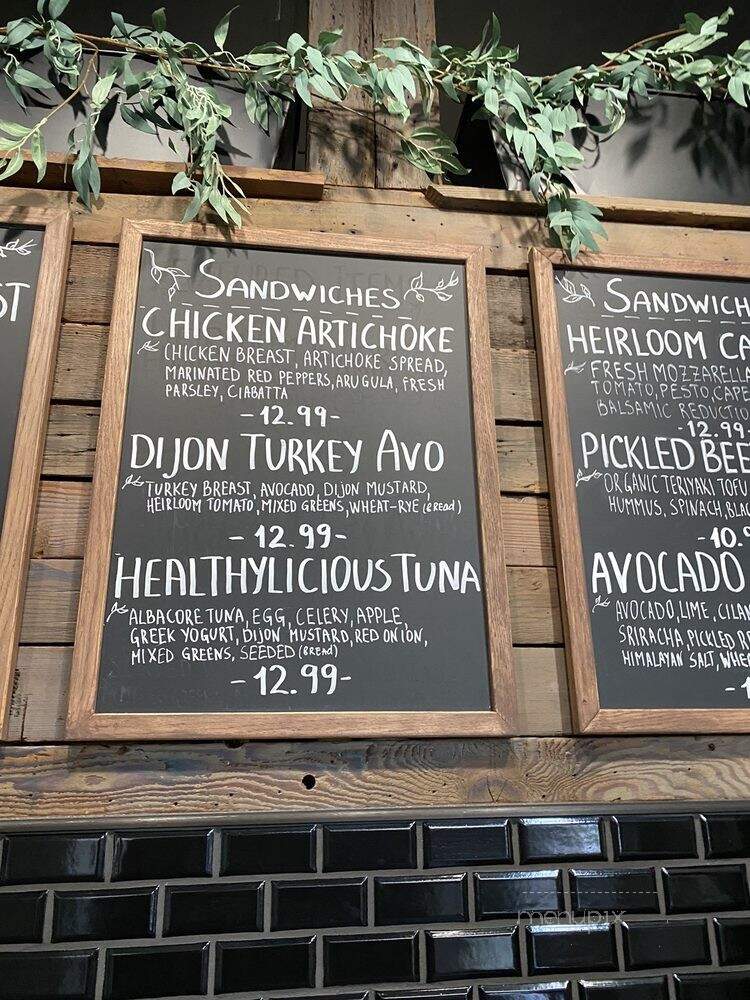 SANDWICHES
CHICKEN ARTICHOKE
CHICKEN BREAST, ARTICHOKE SPREAD,
MARINATED RED PEPPERS, ARUGULA, FRESH
PARSLEY, CIABATTA
-12.99-
DIJON TURKEY AVO
TURKEY BREAST, AVOCADO, DIJON MUSTARD,
HEIRLOOM TOMATO, MIXED GREENS, WHEAT-RYE (BREAD)
-12.99-
HEALTHYLICIOUS TUNA
ALBACORE TUNA, EGG, CELERY, APPLE,
GREEK YOGURT, DIJON MUSTARD, RED ONION,
MIXED GREENS, SEEDED (BREAD)
-12.99-
SANDWICH
HEIRLOOM CA
FRESH MOZZARELLA
TOMATO, PESTO, CAPE
BALSAMIC REDUCTIO
-12.99
PICKLED BEE
ORGANIC TERIYAKI TOFU
HUMMUS, SPINACH, BLAC
-10.9
AVOCADO
AVOCADO, LIME, CILAN
SRIRACHA, PICKLED
HIMALAYAN SALT, WHE
-1
ST
menupix